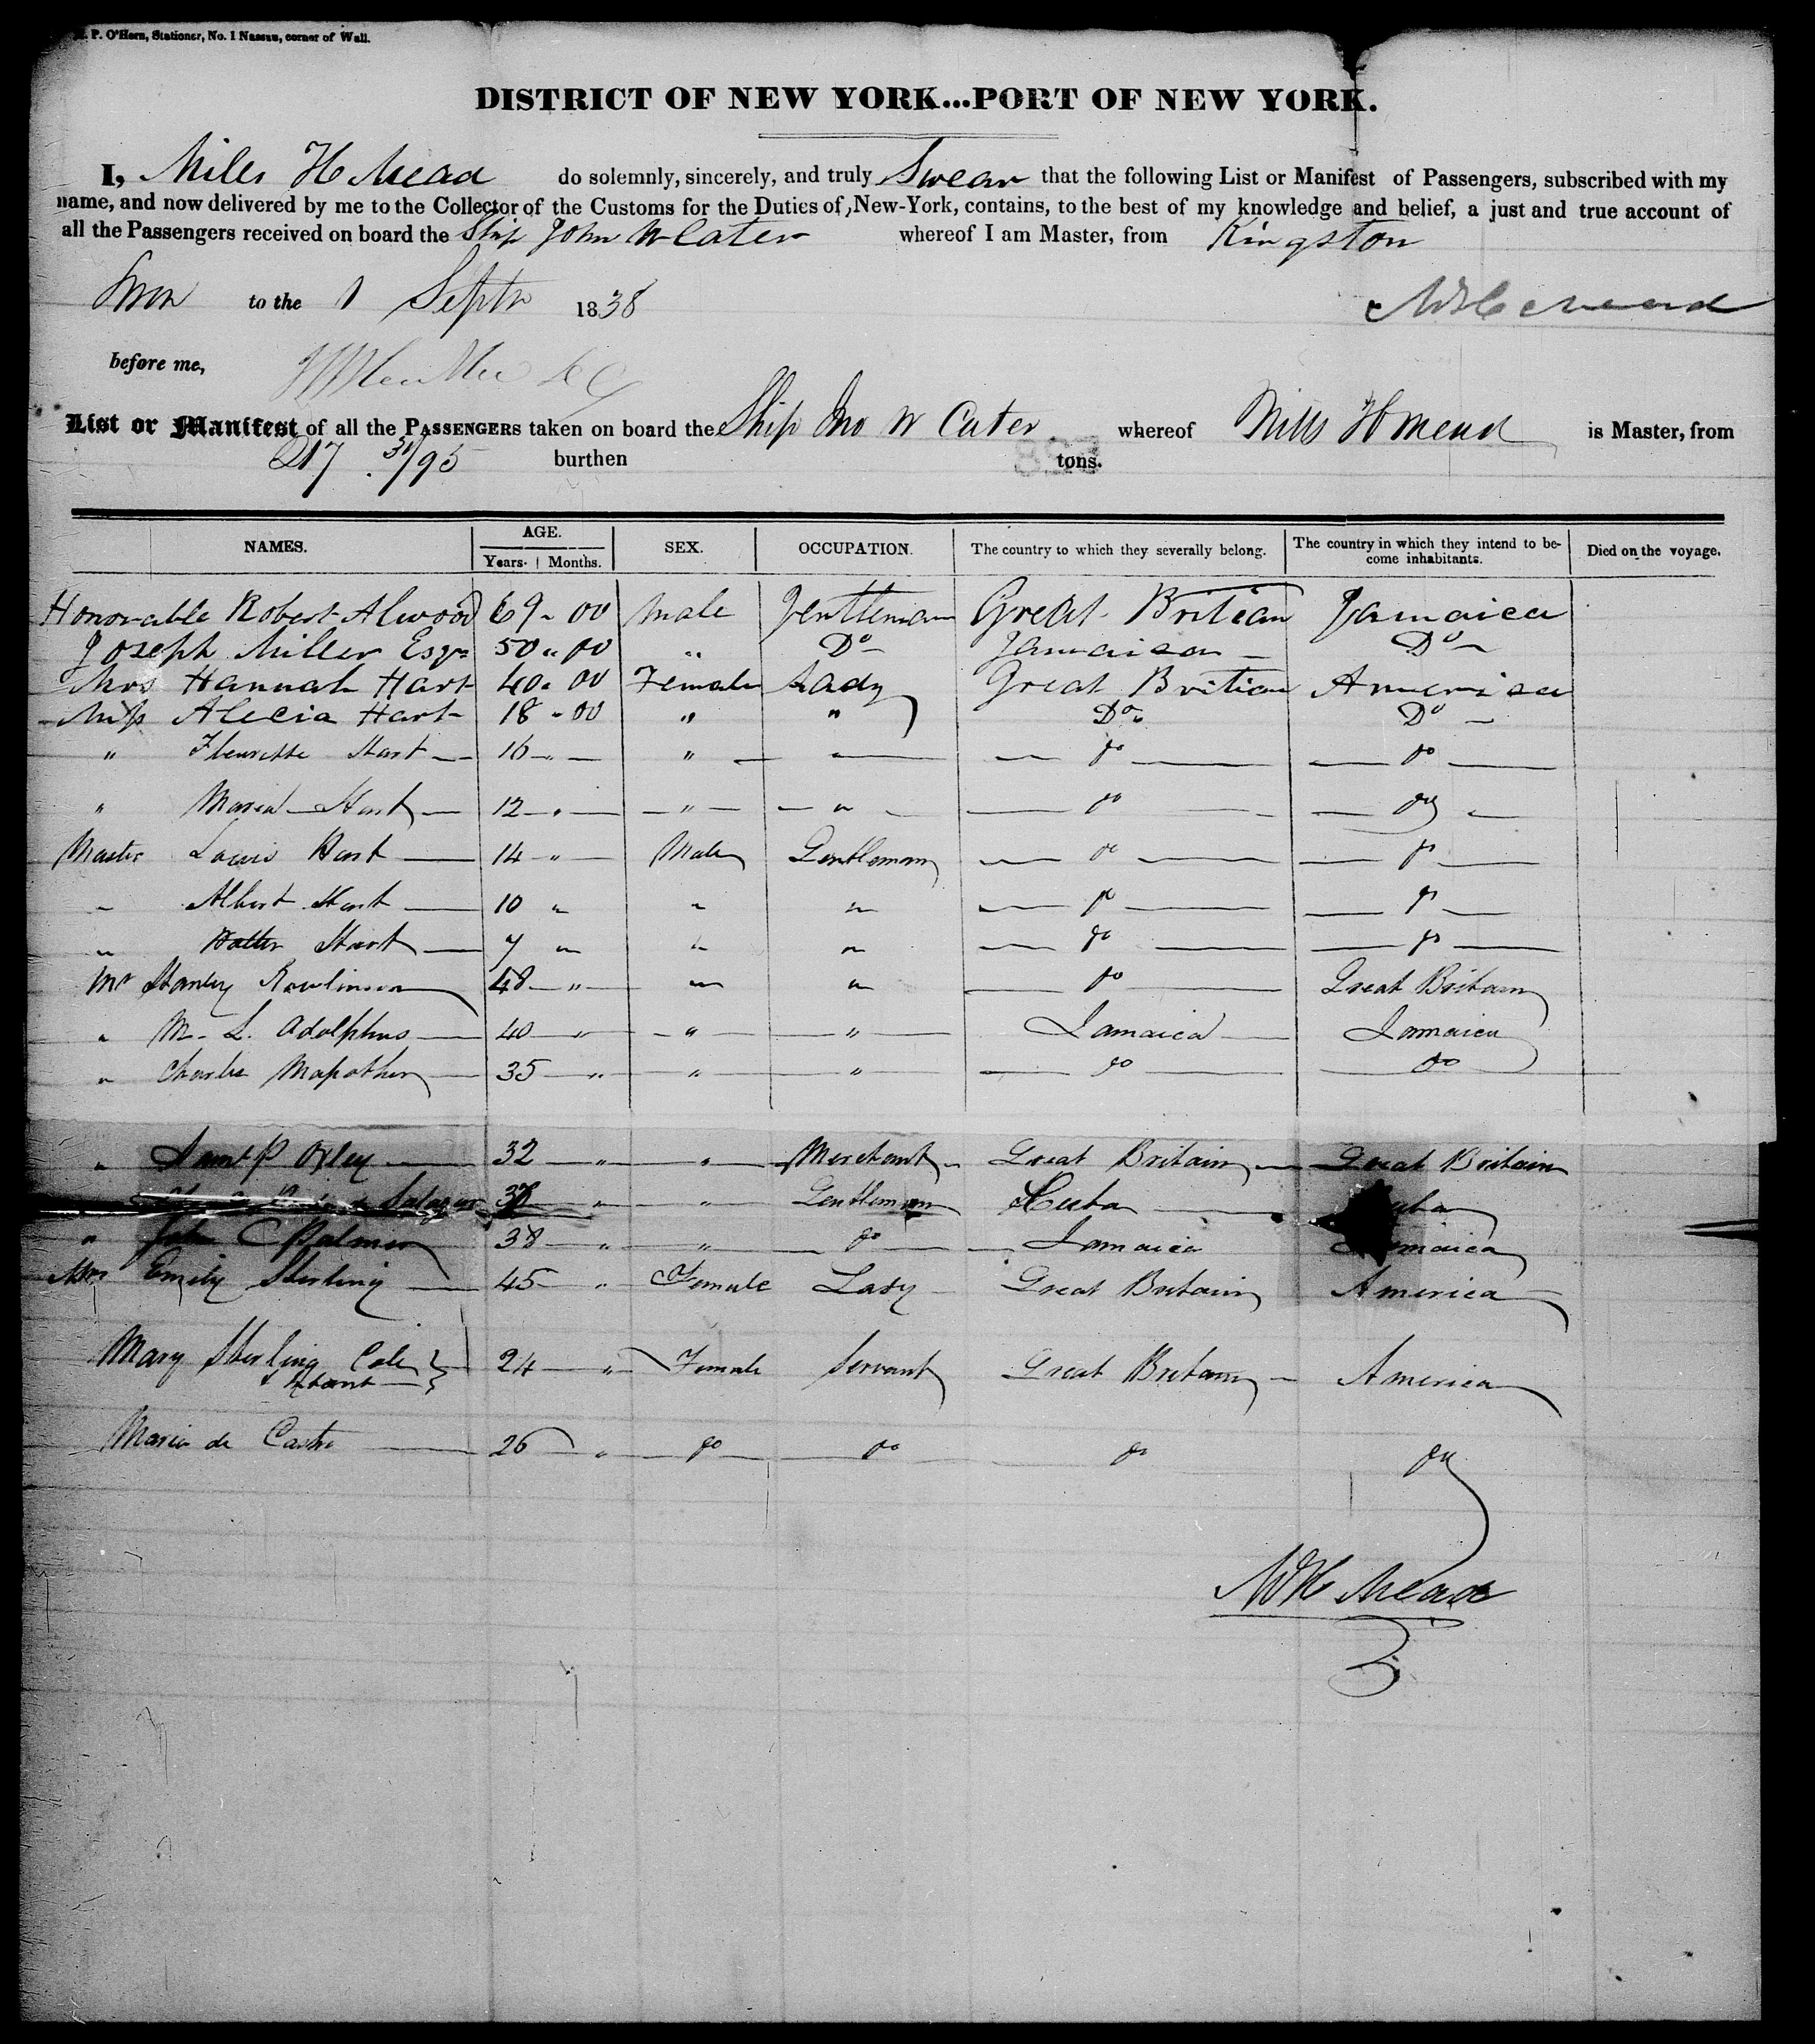 P. O'Hern, Stationer, No. 1 Nassau, corner of Wall.
DISTRICT OF NEW YORK...PORT OF NEW YORK.
I, Miles H Mead do solemnly, sincerely, and truly Swear that the following List or Manifest of Passengers, subscribed with my
name, and now delivered by me to the Collector of the Customs for the Duties of New-York, contains, to the best of my knowledge and belief, a just and true account of
all the Passengers received on board the Ship John W Cater whereof I am Master, from Kingston
Sworn to the 1 Septr 1838 M H Mead
before me,
List or Manifest of all the PASSENGERS taken on board the Ship Jno W Cater whereof Miles H Mead is Master, from
217 31/95 burthen tons.
NAMES. AGE. SEX. OCCUPATION. The country to which they severally belong. The country in which they intend to be- Died on the voyage.
Years. Months. come inhabitants.
Honorable Robert Alwood 69 " 00 Male Gentleman Great Britian Jamaica
Joseph Miller Esqr 50 " 00 " Do Jamaica Do
Mrs Hannah Hart 40 " 00 Female Lady Great Britian America
Miss Alecia Hart 18 " 00 " " Do Do
" Henrietta Hart 16 " " " do do
" Maria Hart 12 " " " do do
Master Louis Hart 14 " Male Gentleman do do
" Albert Hart 10 " " " do do
" Walter Hart 7 " " " do do
Mr Stanley Rowlinson 48 " " " do Great Britain
" M. L. Adolphus 40 " " " Jamaica Jamaica
" Charles Mapother 35 " " " do do
" Saml P Oxley 32 " " Merchant Great Britain Great Britain
Salazar 38 " " Gentleman Cuba Cuba
" John C Palmer 38 " " do Jamaica Jamaica
Mrs Emily Sterling 45 " Female Lady Great Britain America
Mary Sterling Cole 24 " Female Servant Great Britain America
& Infant
Maria de Castro 26 " do do do do
M H Mead